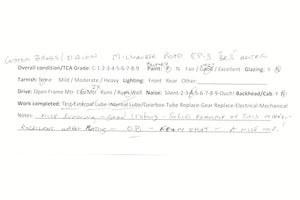 CUSTOM BRASS/DAION MILWAUKEE ROAD EP-3 "BRILL" QUILL
Overall condition/TCA Grade: C-1 2 3 4 5 6 7 8 9 Paint: Y N Fair / Good / Excellent Glazing: Y N
Tarnish: None Mild / Moderate / Heavy Lighting: Front Rear Other:
Drive: Open Frame Mtr Can Mtr 2X Runs / Runs Well Noise: Silent-2-3-4-5-6-7-8-9-Ouch! Backhead/Cab: Y N
Work completed: Test-External Lube-Internal Lube/Gearbox Tube Replace-Gear Replace-Electrical-Mechanical
Notes: NICE RUNNING - GOOD LIGHTING - SOLID EXAMPLE OF THIS MODEL -
EXCELLENT - OB - FOAM OKAY - A NICE ONE!